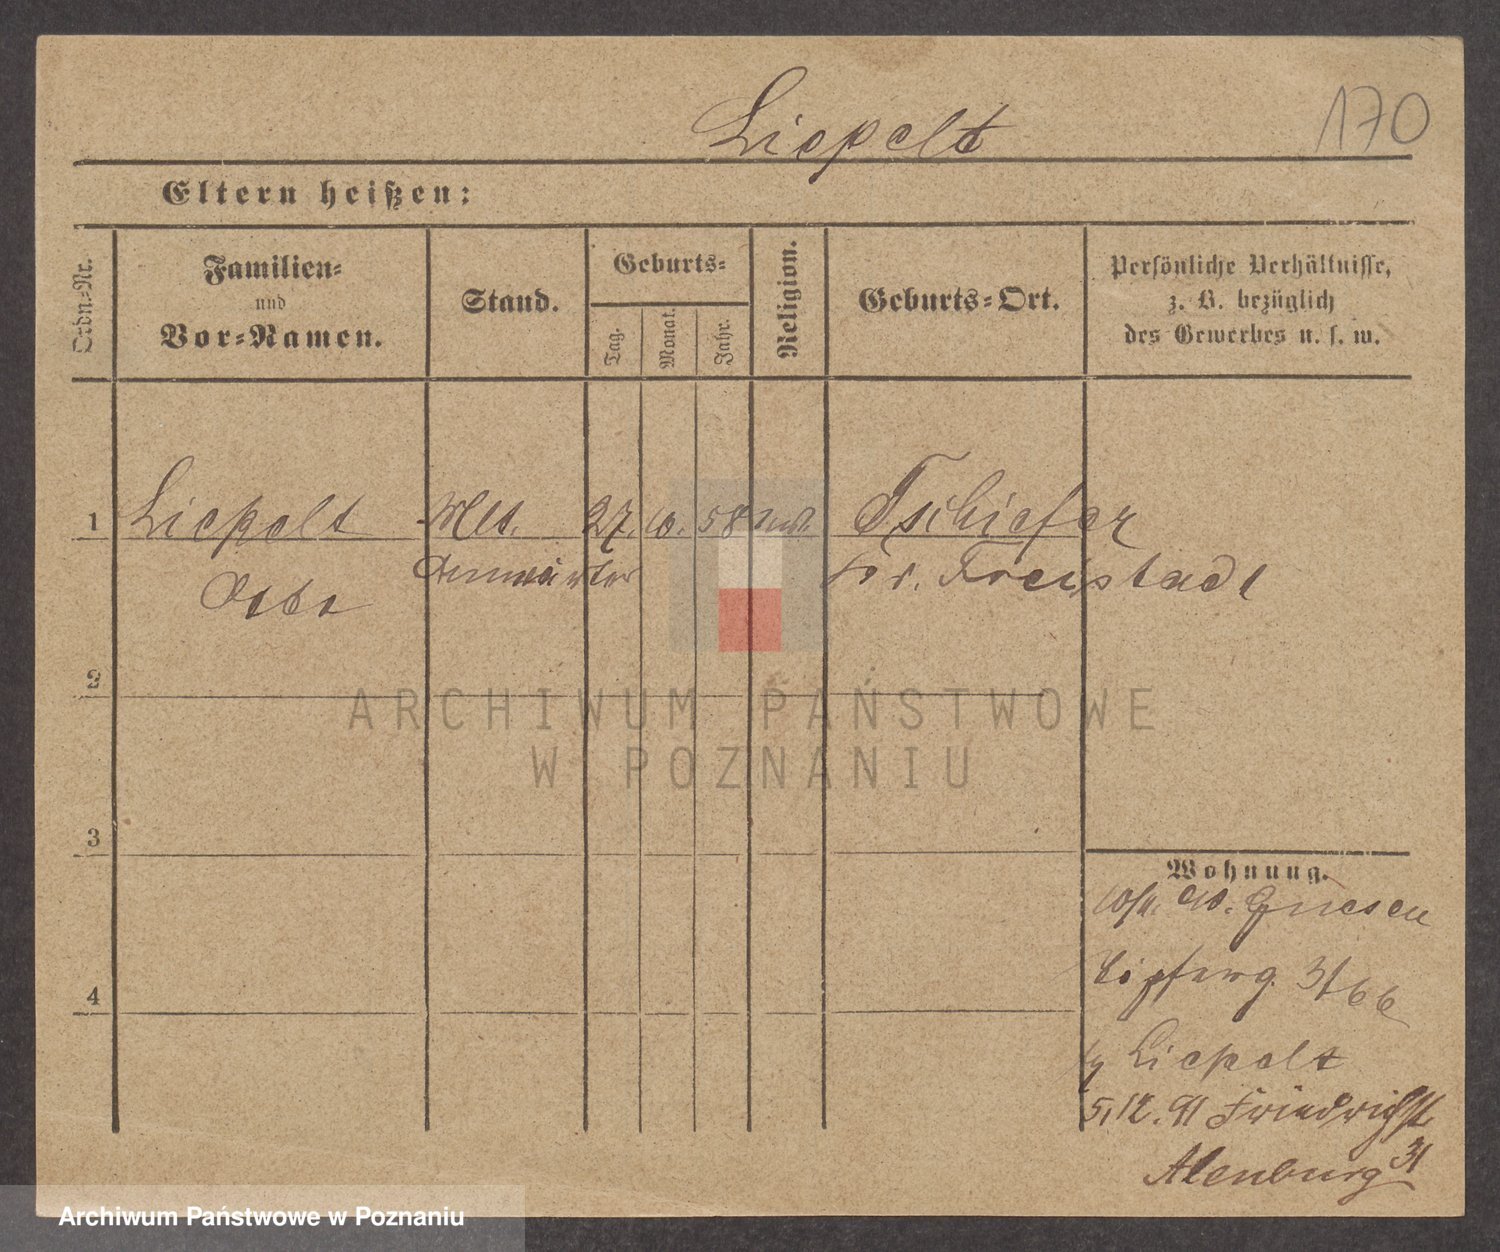 Liepelt
170
Eltern heißen:
Ordn.-Nr.
Familien-
und
Vor-Namen.
Stand.
Geburts-
Tag.
Monat.
Jahr.
Religion.
Geburts-Ort.
Persönliche Verhältnisse,
z. B. bezüglich
des Gewerbes u. s. w.
1 Liepelt 27. 10. 58 Tschiefer
Anwärter Kr. Freistadt
2
3
4
Wohnung.
Gnesen
31/66
Liepelt
5.12.91 Friedrichst.
31
ARCHIWUM PAŃSTWOWE
W POZNANIU
Archiwum Państwowe w Poznaniu